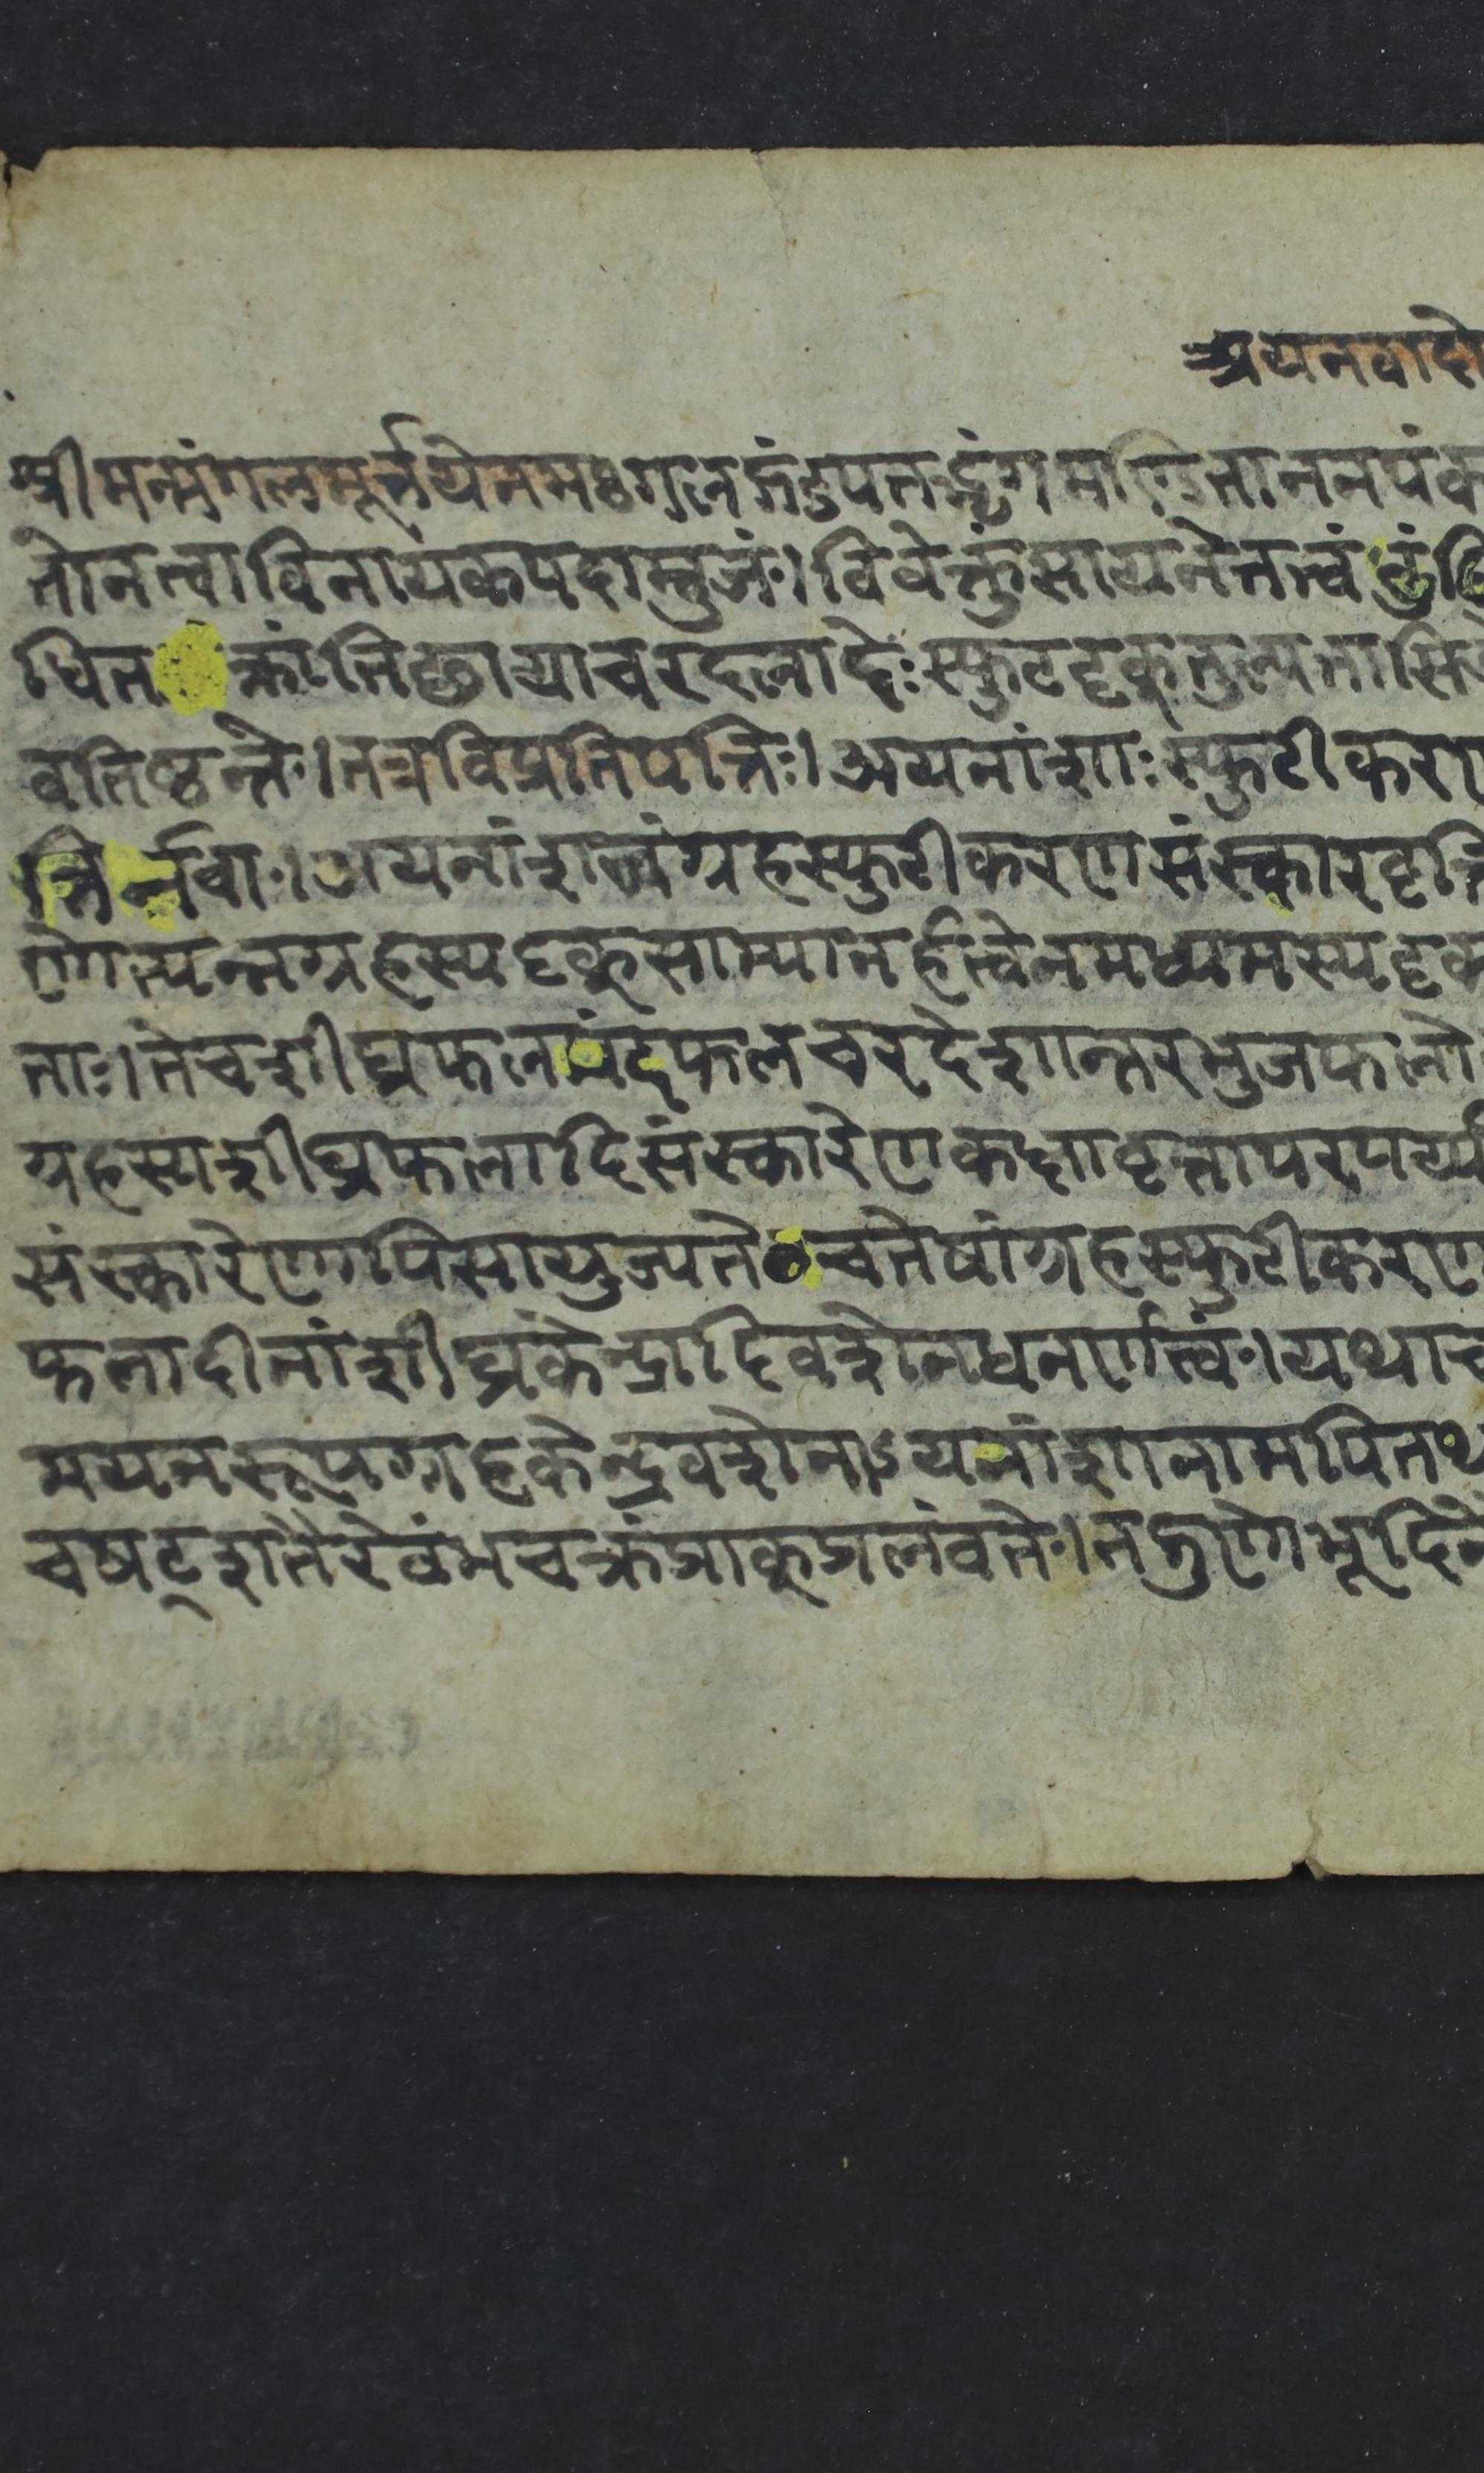 अयनवादो
श्रीमन्मंगलमूर्त्तयेनमः गलन्मंदुपतद्भृंगमण्डिताननपंक
तोनत्वाविनायकपदाम्बुजं। विवेक्तुंसायनेतत्त्वं
धित क्रांतिछायाचरदलादेः स्फुटदृक्तुल्यतासि
वतिष्ठन्ते। तत्रविप्रतिपत्तिः। अयनांशाः स्फुटीकरण
न्तिर्नवा। अयनांशत्वंग्रहस्फुटीकरणसंस्कारवृत्ति
णोत्पन्नग्रहस्यदृक्साम्यानर्हत्वेनमध्यमस्यदृक
ताः। तेचशीघ्रफलमंदफलचरदेशान्तरभुजफलो
ग्रहस्यशीघ्रफलादिसंस्कारेणकक्षावृत्तापरपर्या
संस्कारेणापिसायुज्यते चतेषांग्रहस्फुटीकरण
फलादीनांशीघ्रकेन्द्रादिवशेनधनर्णत्वं। यथाच
मयनरूपग्रहकेन्द्रवशेनाऽयनांशानामपितथ
चषट्शतैरेवंभचक्रंप्राक्प्रलंवते। तद्गुणोभूदिनै